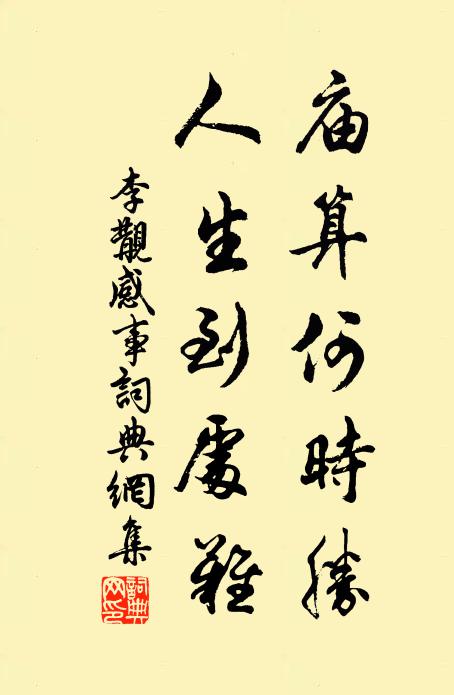 庙算何時勝
人生到處難
李覯感事詞典網集
詞典网印